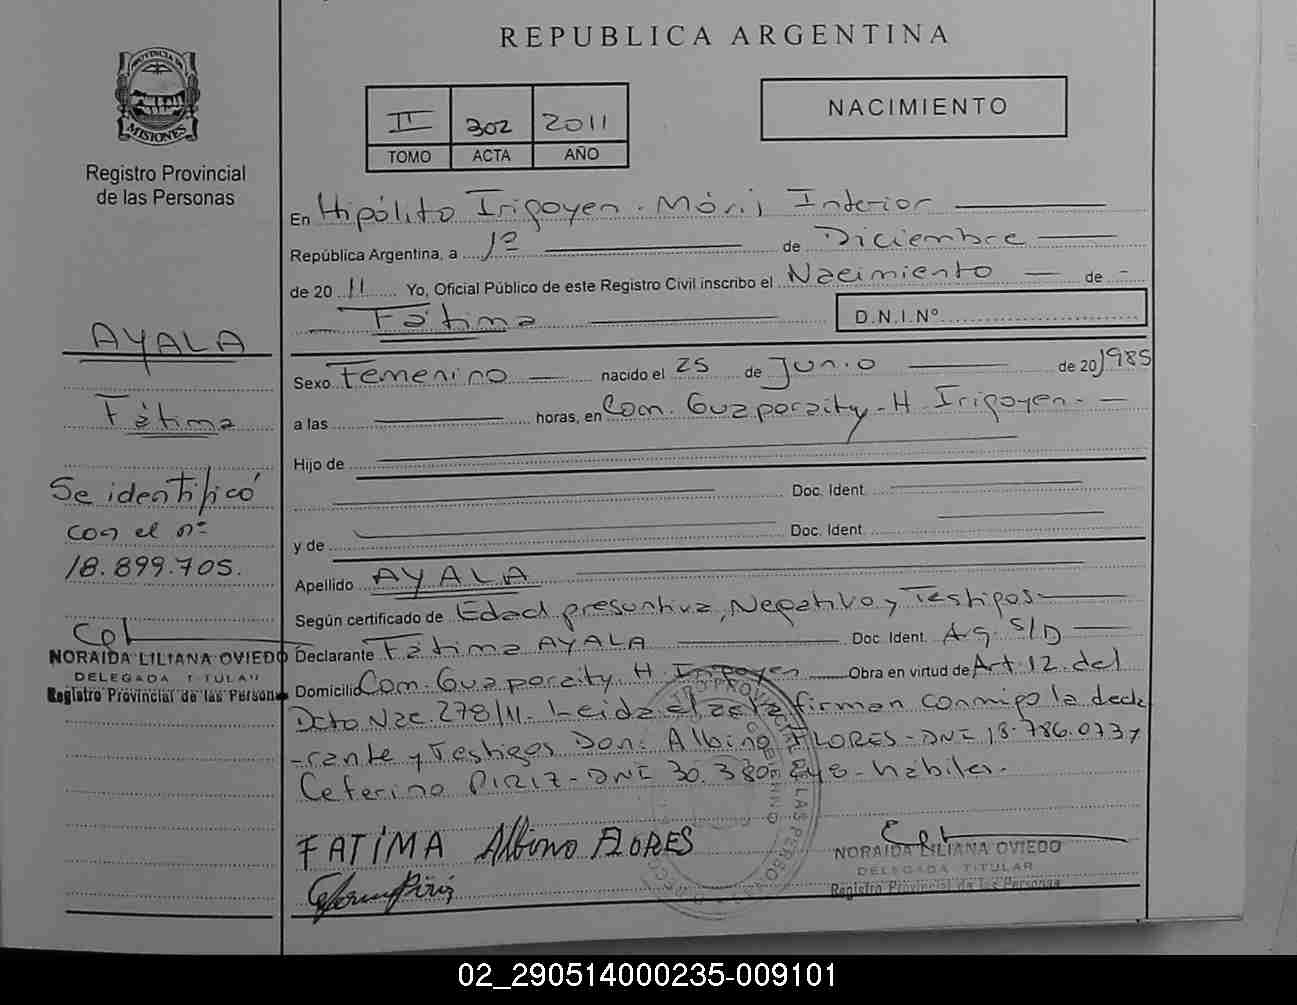 REPUBLICA ARGENTINA
PROVINCIA DE MISIONES
Registro Provincial
de las Personas
II 302 2011
TOMO ACTA AÑO
NACIMIENTO
En Hipólito Irigoyen - Interior
República Argentina, a 1º de Diciembre
de 20 11 Yo, Oficial Público de este Registro Civil inscribo el Nacimiento de
Fátima D.N.I.Nº
Sexo Femenino nacido el 25 de Junio de 20 1985
a las horas, en Com. Guaporaity - H. Irigoyen -
Hijo de
Doc. Ident.
y de Doc. Ident.
Apellido AYALA
Según certificado de Edad presuntiva, Negativo y Testigos
Declarante Fátima AYALA Doc. Ident. Arg. S/D
Domicilio Com. Guaporaity H. Irigoyen Obra en virtud de Art. 12 del
Dcto Nac. 278/11 - Leida el acta firman conmigo la decla
-rante y Testigos Don: Albino FLORES - DNI 18.786.073 y
Ceferino PIRIZ - DNI 30.380.848 - hábiles.
FATIMA Albino FLORES
NORAIDA LILIANA OVIEDO
DELEGADA TITULAR
Registro Provincial de las Personas
AYALA
Fátima
Se identificó
con el nº
18.899.705.
NORAIDA LILIANA OVIEDO
DELEGADA TITULAR
Registro Provincial de las Personas
02_290514000235-009101